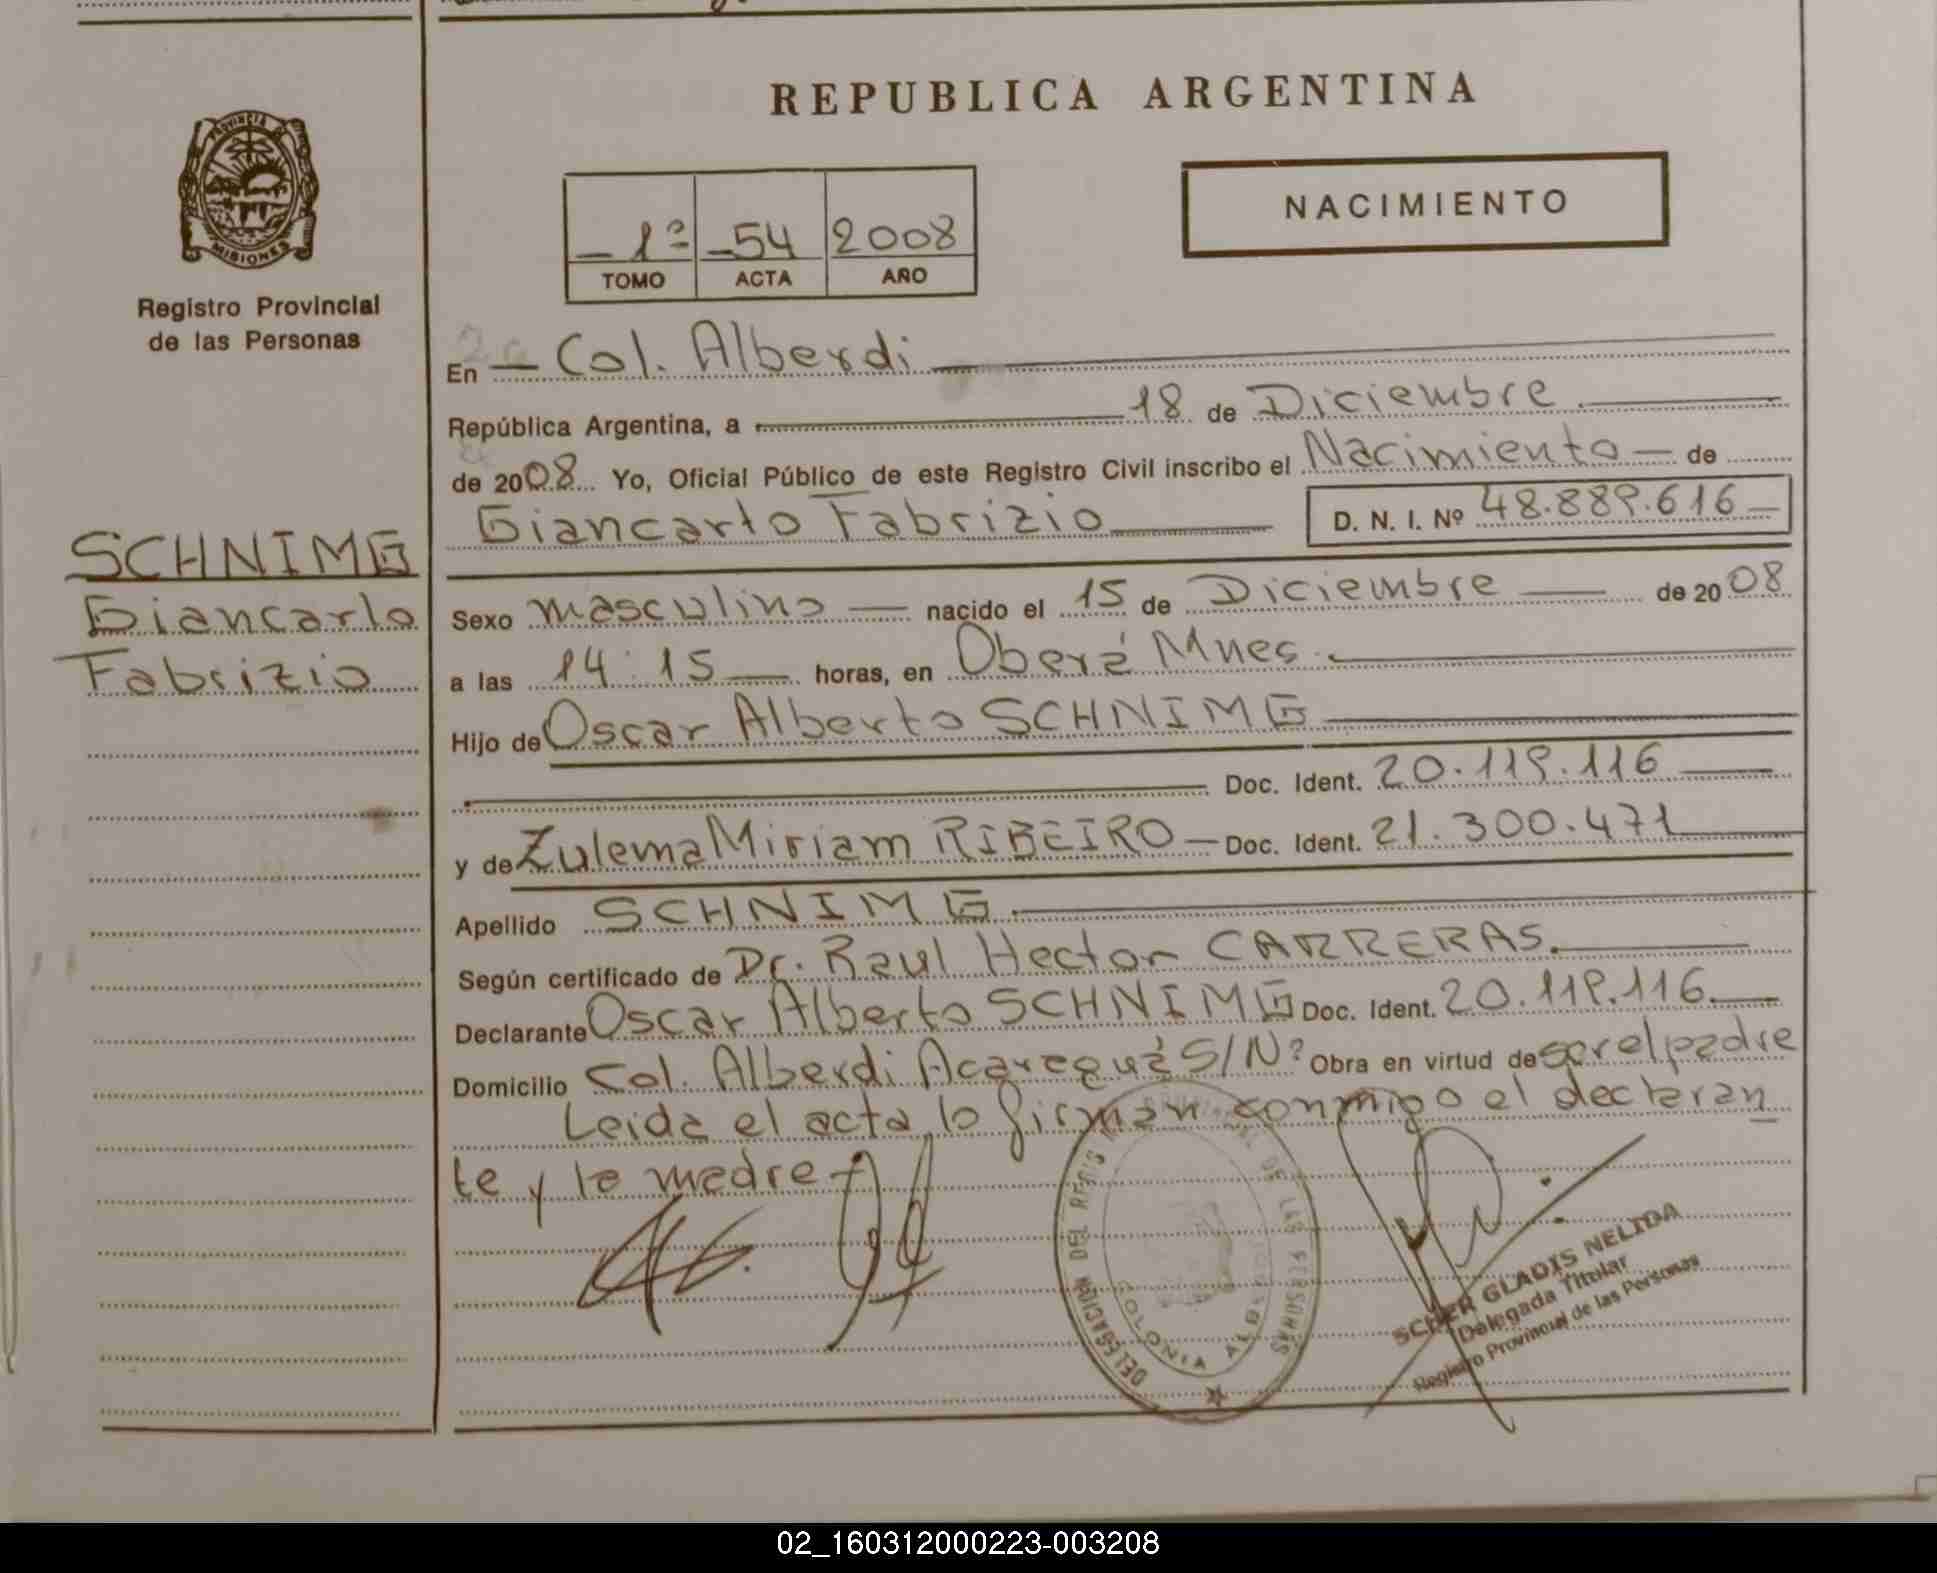 REPUBLICA ARGENTINA
NACIMIENTO
PROVINCIA DE
MISIONES
Registro Provincial
de las Personas
1º 54 2008
TOMO ACTA AÑO
En Col. Alberdi
República Argentina, a 18 de Diciembre
de 2008 Yo, Oficial Público de este Registro Civil inscribo el Nacimiento de
Giancarlo Fabrizio D. N. I. Nº 48.889.616
SCHNIMG
Giancarlo
Fabrizio
Sexo masculino nacido el 15 de Diciembre de 2008
a las 14:15 horas, en Oberá Mnes.
Hijo de Oscar Alberto SCHNIMG
Doc. Ident. 20.119.116
y de Zulema Miriam RIBEIRO Doc. Ident. 21.300.471
Apellido SCHNIMG
Según certificado de Dr. Raul Hector CARRERAS.
Declarante Oscar Alberto SCHNIMG Doc. Ident. 20.119.116
Domicilio Col. Alberdi Acaragua S/Nº Obra en virtud de ser el padre
Leida el acta lo firman conmigo el declaran
te y la madre
DELEGACION DEL REGIS PROVINCIAL DE LAS PERSONAS
COLONIA ALBERDI
SCHER GLADIS NELIDA
Delegada Titular
Registro Provincial de las Personas
02_160312000223-003208